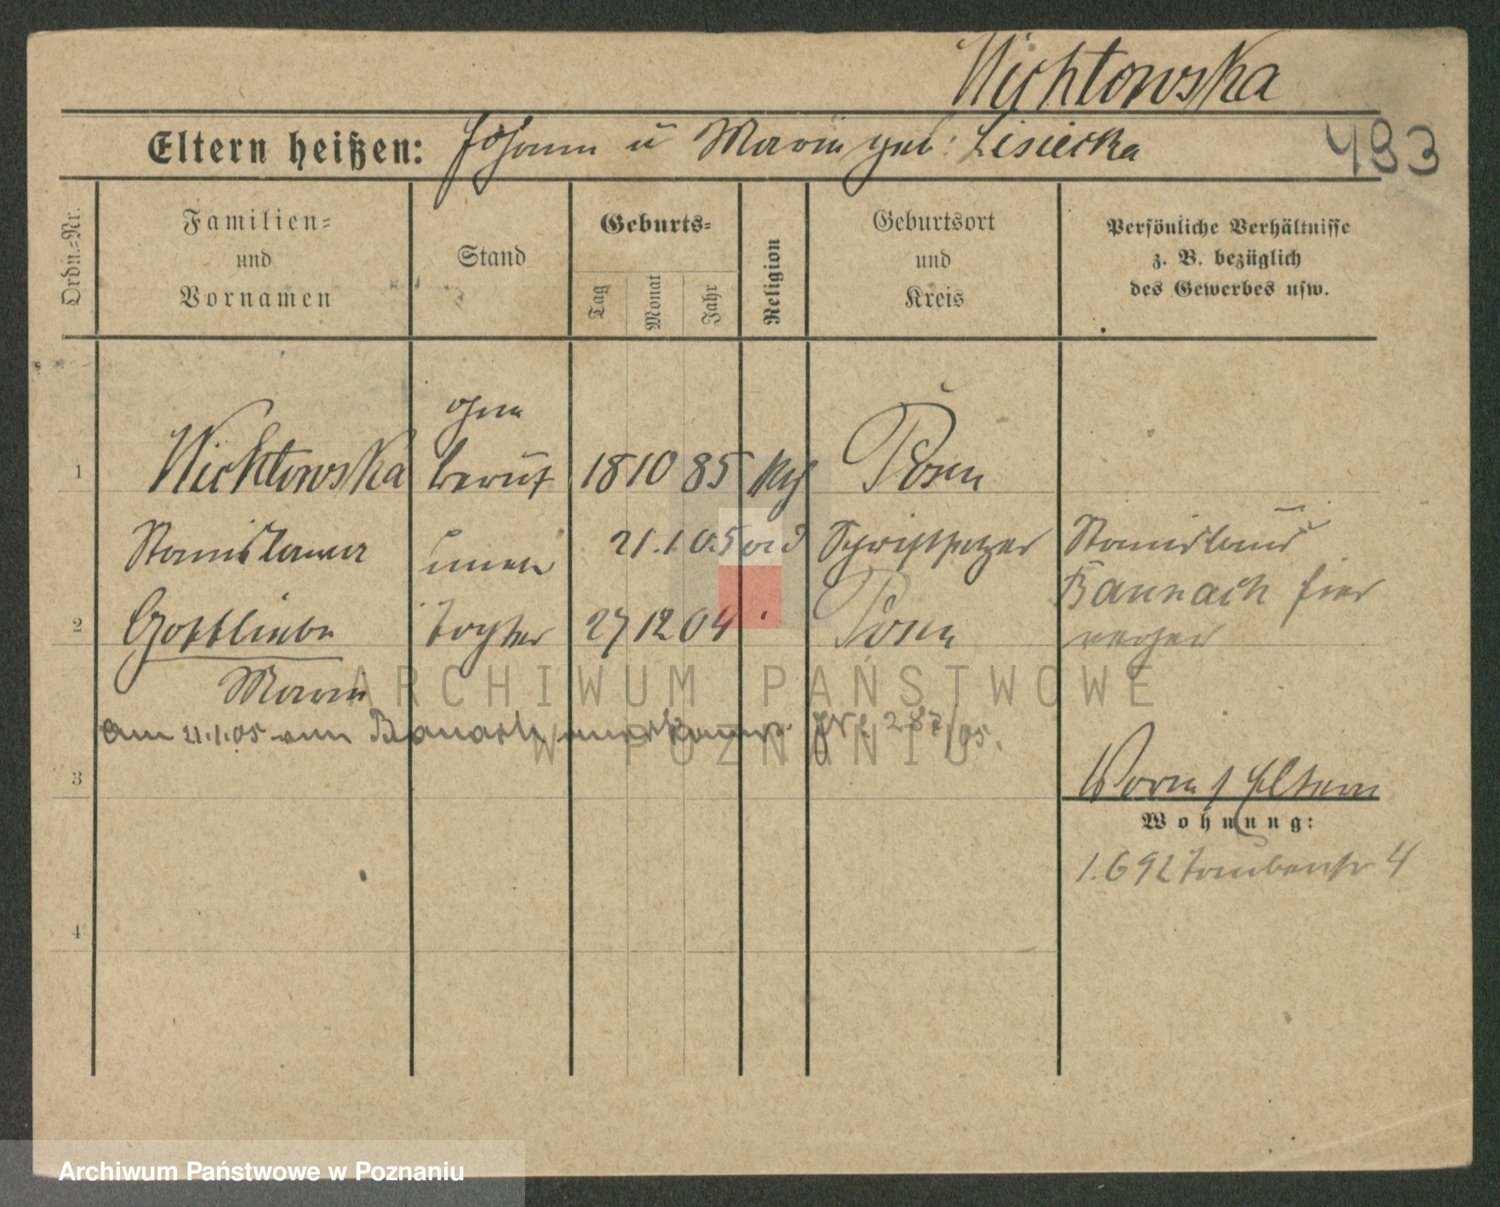 Wichtowska
Eltern heißen: Johann u Marie geb: Lisiecka
493
Ordn.-Nr.
Familien-
und
Vornamen
Stand
Geburts-
Tag
Monat
Jahr
Religion
Geburtsort
und
Kreis
Persönliche Verhältnisse
z. B. bezüglich
des Gewerbes usw.
ohne
1 Wichtowska Beruf 18 10 85 kth Posen
Stanislawa 21.1.05 Schriftsetzer Stanislaus
2 Gottliebe Tochter 27 12 04 Posen Bannach hier
Marie
am 21.1.05 von Banach anerkannt. 287/05.
3
Worm / Eltern
Wohnung:
1.6 92 Taubenstr 4
4
ARCHIWUM PAŃSTWOWE
W POZNANIU
Archiwum Państwowe w Poznaniu